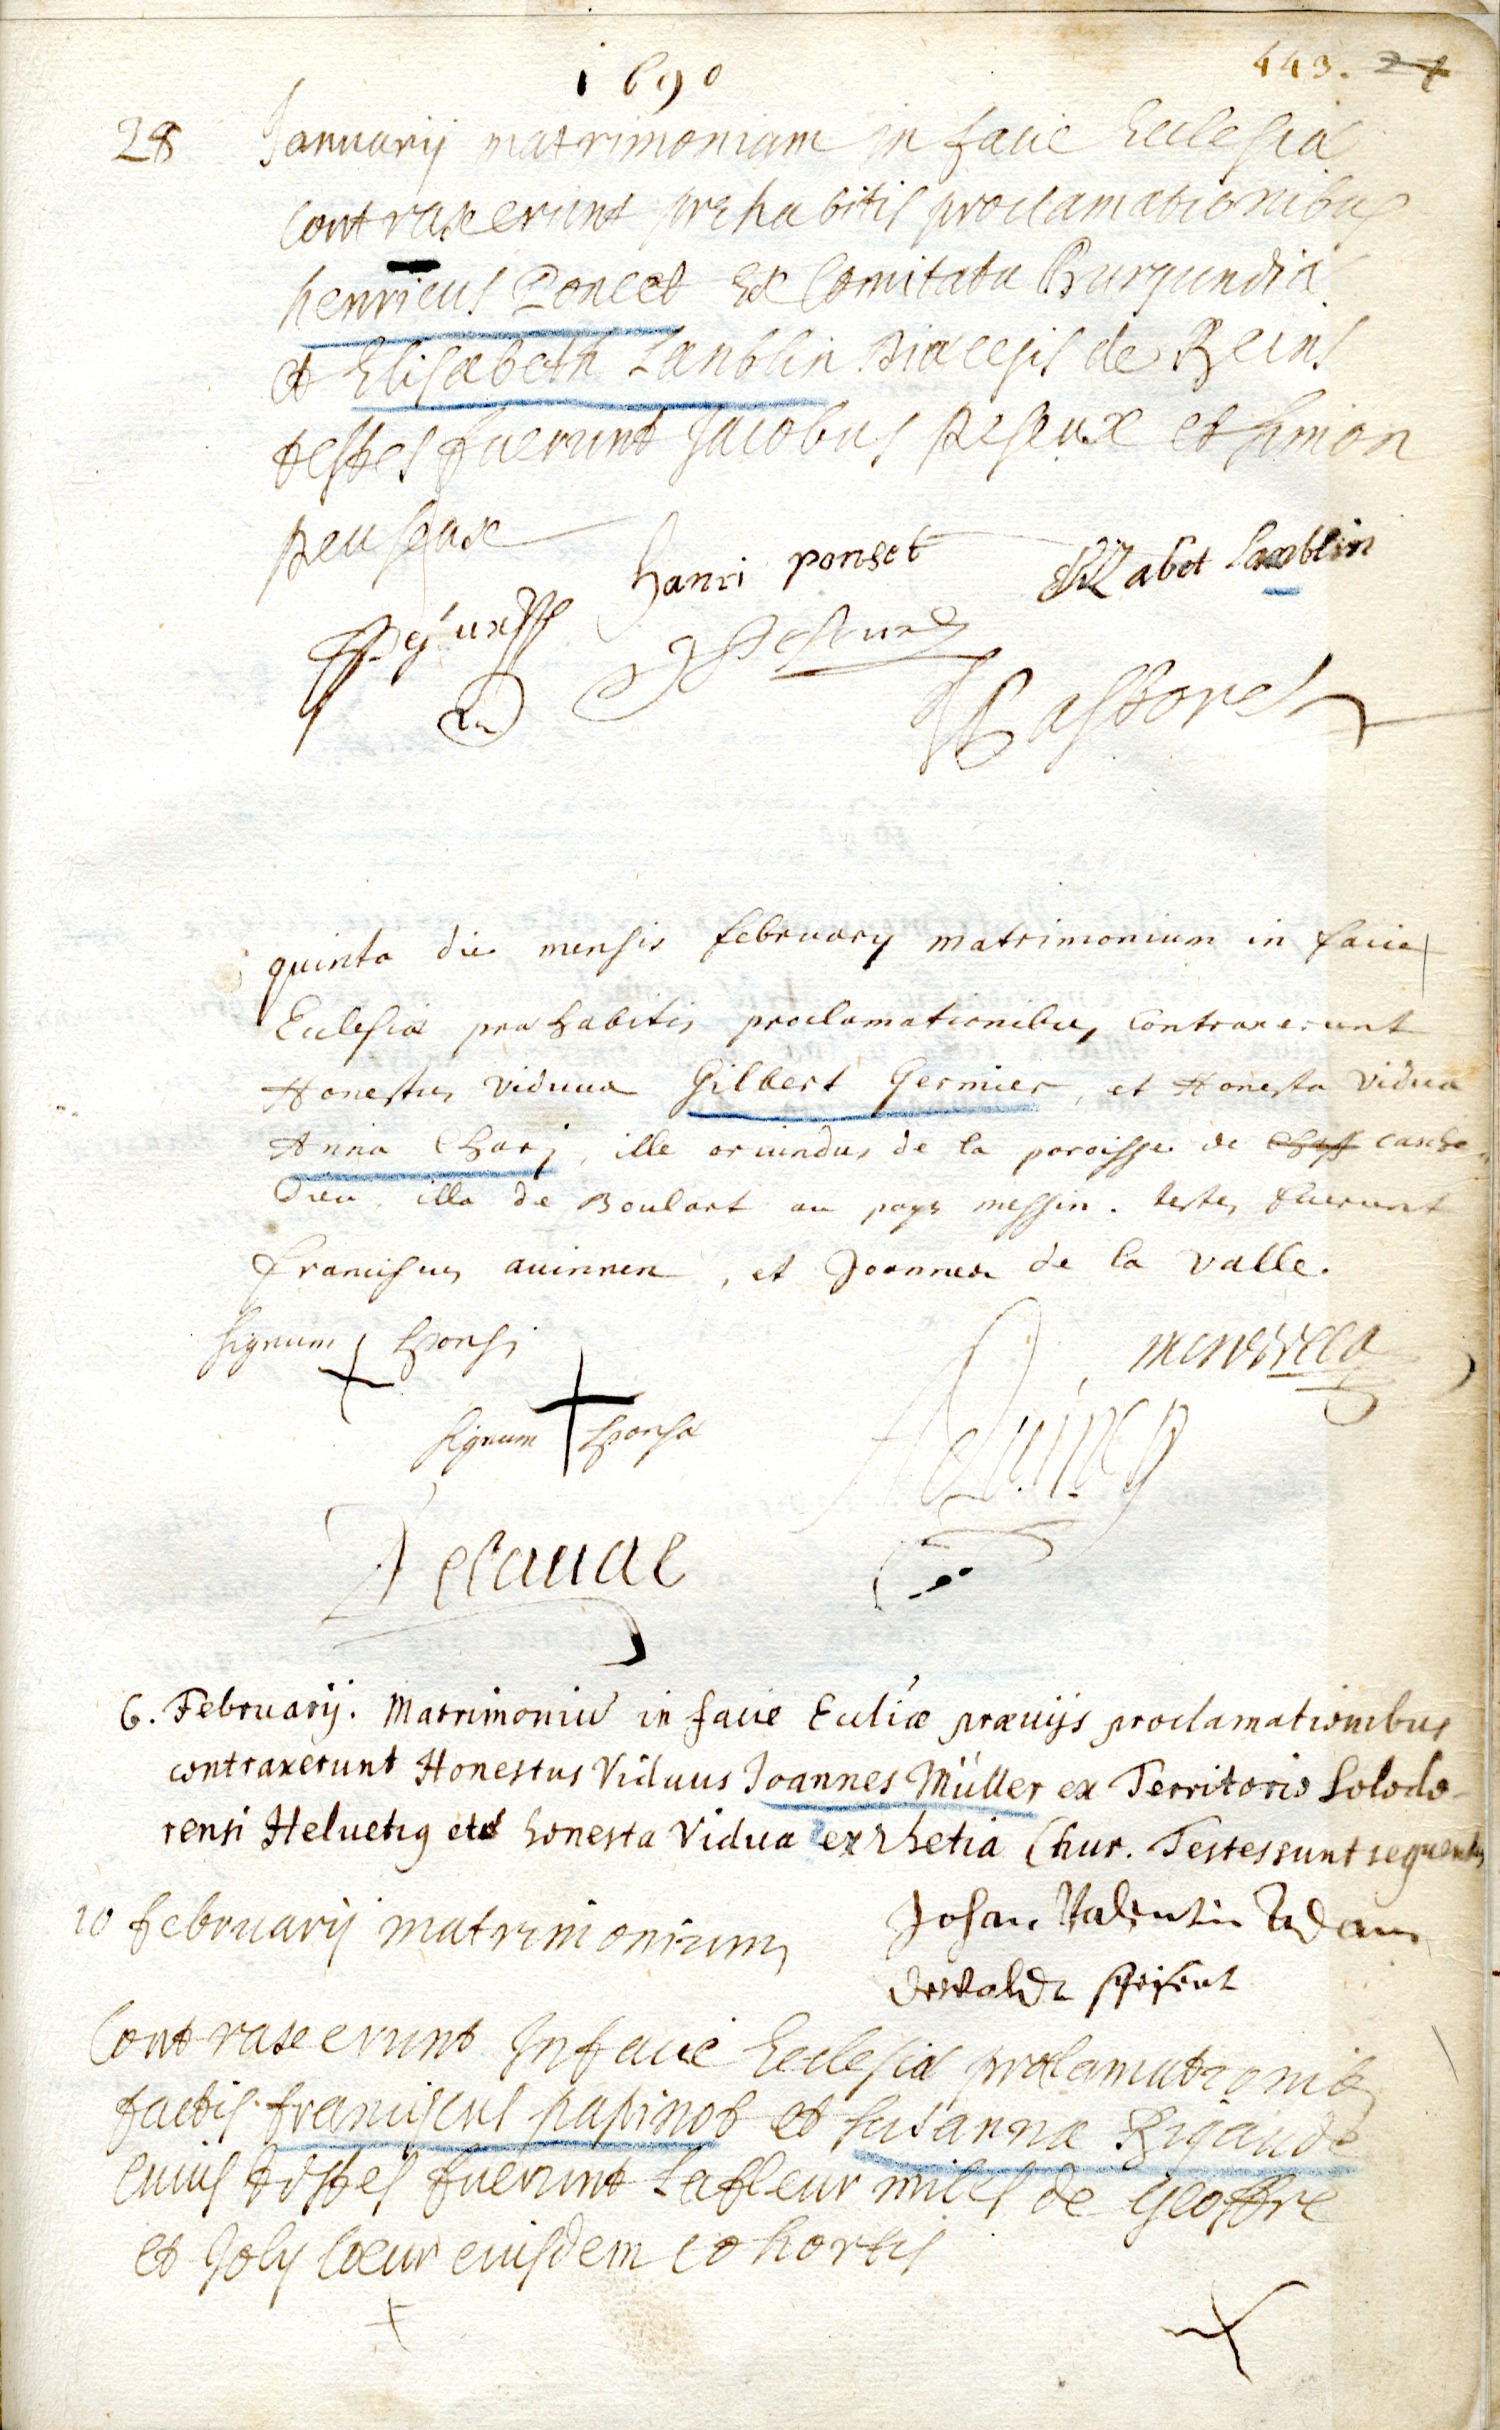 1690
443. 24
28 Januarij matrimoniam in facie Ecclesiæ
contraxerunt prehabitis proclamationibus
henricus Poncet Ex Comitatu Burgundiæ
et Elisabeth Lamblin Diæcesis de Reins
testes fuerunt Jacobus peseux et simon
peuseux
hanri ponset
Elizabet lamblin
quinta die mensis february matrimonium in facie
Ecclesiæ præhabitis proclamationibus contraxerunt
Honestus viduus Gilbert Germier, et Honesta vidua
Anna Charj, ille oriundus de la paroisse de casche
dieu, illa de Boulart au pays messin. testes fuerunt
franciscus auinnen, et Joannes de la valle.
signum sponsi
signum sponsæ
Delauae
6. Februarij. Matrimoniū in facie Eccliæ præuijs proclamationibus
contraxerunt Honestus Viduus Joannes Müller ex Territorio Solodo-
rensi Helvetię et honesta Vidua ex rhetia Chur. Testes sunt sequentes
Johan Valentin Adam
10 februarij matrimonium
Contraxerunt In facie Ecclesiæ proclamationib
factis franciscus papinot et susanna Rigaude
cuius testes fuerunt Lafleur miles de geoffre
et Joly Cœur eiusdem cohortis